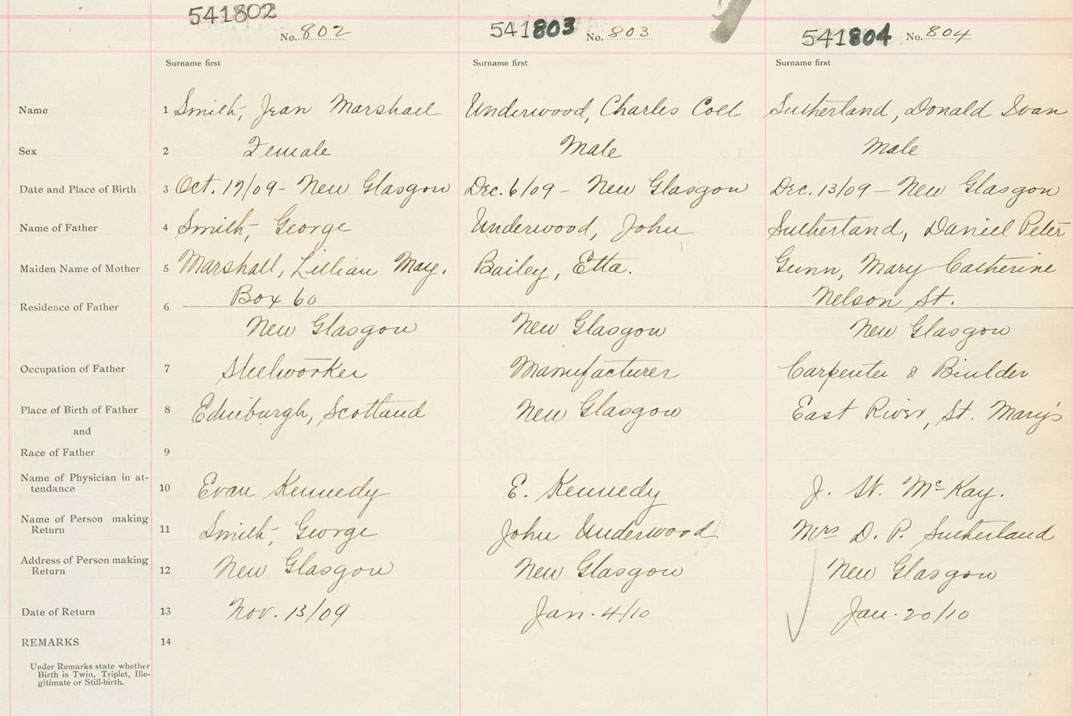 541802 No. 802 541803 No. 803 541804 No. 804
Surname first Surname first Surname first
Name 1 Smith, Jean Marshall Underwood, Charles Coll Sutherland, Donald Ivan
Sex 2 Female Male Male
Date and Place of Birth 3 Oct. 17/09 - New Glasgow Dec. 6/09 - New Glasgow Dec. 13/09 - New Glasgow
Name of Father 4 Smith, George Underwood, John Sutherland, Daniel Peter
Maiden Name of Mother 5 Marshall, Lillian May. Bailey, Etta. Gunn, Mary Catherine
Residence of Father 6 Box 60 Nelson St.
New Glasgow New Glasgow New Glasgow
Occupation of Father 7 Steelworker Manufacturer Carpenter & Builder
Place of Birth of Father 8 Edinburgh, Scotland New Glasgow East River, St. Mary's
and
Race of Father 9
Name of Physician in at-
tendance 10 Evan Kennedy E. Kennedy J. W. McKay.
Name of Person making
Return 11 Smith, George John Underwood Mrs D. P. Sutherland
Address of Person making
Return 12 New Glasgow New Glasgow New Glasgow
Date of Return 13 Nov. 13/09 Jan. 4/10 Jan. 20/10
REMARKS 14
Under Remarks state whether
Birth is Twin, Triplet, Ille-
gitimate or Still-birth.